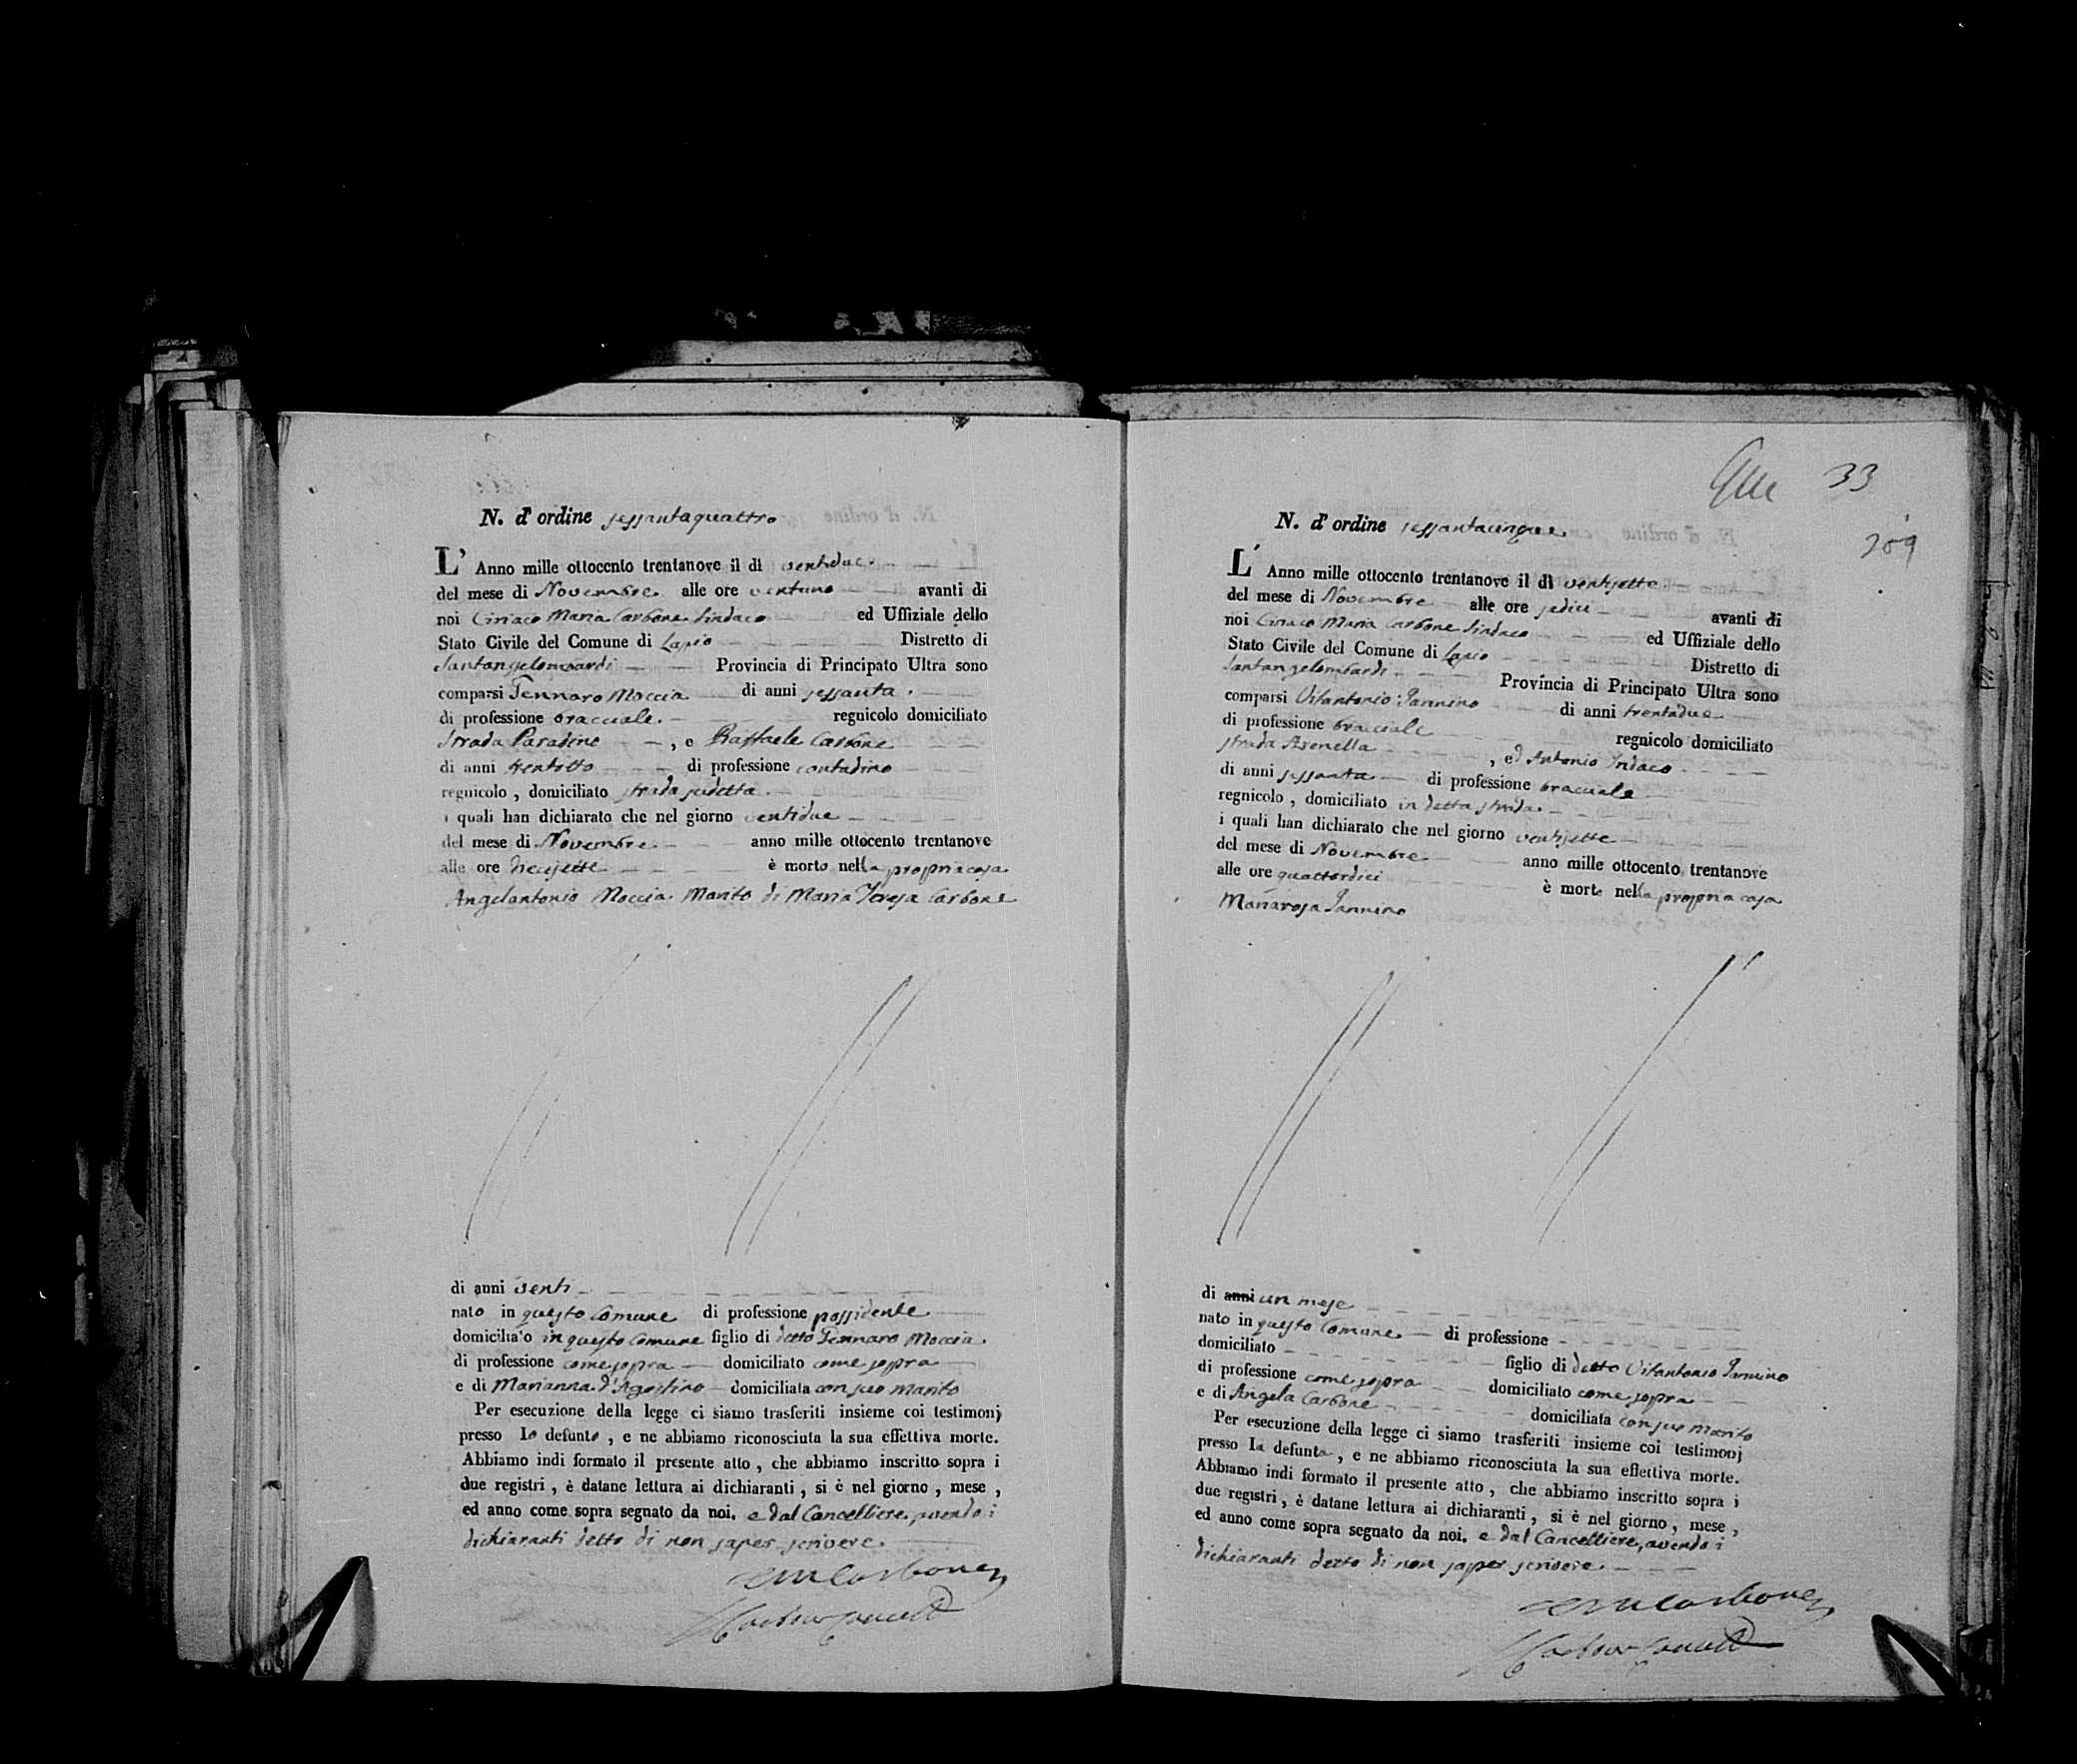 N. d'ordine sessantaquattro
L' Anno mille ottocento trentanove il di ventidue
del mese di Novembre alle ore ventuno avanti di
noi Ciriaco Maria Carbone Sindaco ed Uffiziale dello
Stato Civile del Comune di Lapio Distretto di
Santangelombardi Provincia di Principato Ultra sono
comparsi Gennaro Moccia di anni sessanta
di professione bracciale regnicolo domiciliato
strada Paradine , e Raffaele Carbone
di anni trentotto , di professione contadino
regnicolo , domiciliato strada sudetta
i quali han dichiarato che nel giorno ventidue
del mese di Novembre anno mille ottocento trentanove
alle ore diecisette è morto nella propria casa
Angelantonio Moccia Marito di Maria Teresa Carbone
di anni venti
nato in questo Comune di professione possidente
domiciliato in questo Comune figlio di detto Gennaro Moccia
di professione come sopra domiciliato come sopra
e di Marianna d'Agostino domiciliata con suo marito
Per esecuzione della legge ci siamo trasferiti insieme coi testimonj
presso lo defunto , e ne abbiamo riconosciuta la sua effettiva morte.
Abbiamo indi formato il presente atto , che abbiamo inscritto sopra i
due registri , è datane lettura ai dichiaranti , si è nel giorno , mese ,
ed anno come sopra segnato da noi. e dal Cancelliere, avendo i
dichiaranti detto di non saper scrivere
CMCarbone
33
209
N. d'ordine sessantacinque
L' Anno mille ottocento trentanove il di ventisette
del mese di Novembre alle ore sedici avanti di
noi Ciriaco Maria Carbone Sindaco ed Uffiziale dello
Stato Civile del Comune di Lapio Distretto di
Santangelombardi Provincia di Principato Ultra sono
comparsi Vitantonio Iannino di anni trentadue
di professione bracciale regnicolo domiciliato
strada Arenella , ed Antonio Indaco
di anni sessanta di professione bracciale
regnicolo , domiciliato in detta strada
i quali han dichiarato che nel giorno ventisette
del mese di Novembre anno mille ottocento trentanove
alle ore quattordici è morto nella propria casa
Mariarosa Iannino
di anni un mese
nato in questo Comune di professione
domiciliato figlio di detto Vitantonio Iannino
di professione come sopra domiciliato come sopra
e di Angela Carbone domiciliata con suo marito
Per esecuzione della legge ci siamo trasferiti insieme coi testimonj
presso la defunta , e ne abbiamo riconosciuta la sua effettiva morte.
Abbiamo indi formato il presente atto , che abbiamo inscritto sopra i
due registri , è datane lettura ai dichiaranti , si è nel giorno , mese ,
ed anno come sopra segnato da noi. e dal Cancelliere, avendo i
dichiaranti detto di non saper scrivere
CMCarbone